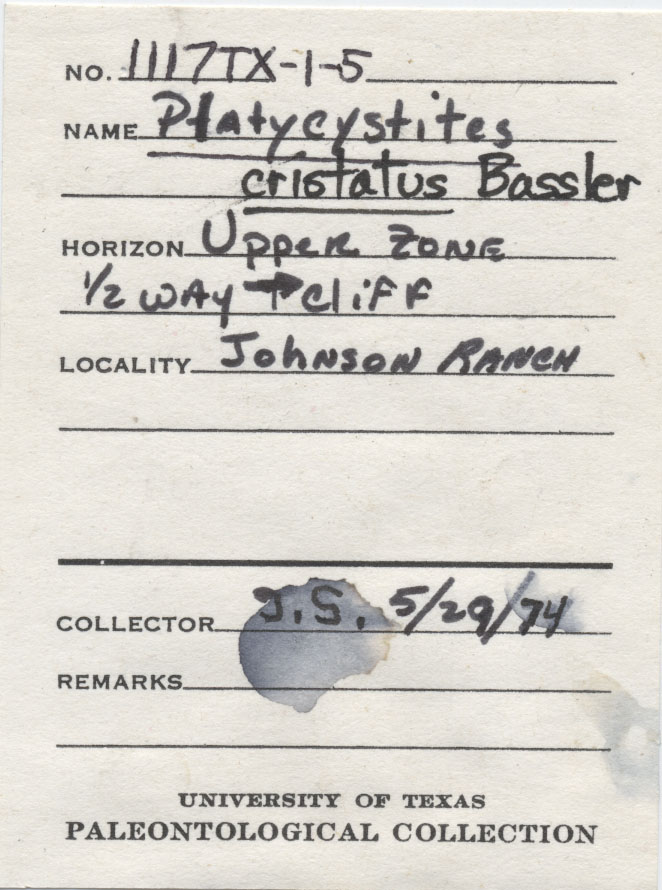 NO. 1117TX-1-5
NAME Platycystites
cristatus Bassler
HORIZON Upper ZONE
1/2 WAY ↑ CliFF
LOCALITY Johnson RANCH
COLLECTOR J.S. 5/29/74
REMARKS
UNIVERSITY OF TEXAS
PALEONTOLOGICAL COLLECTION